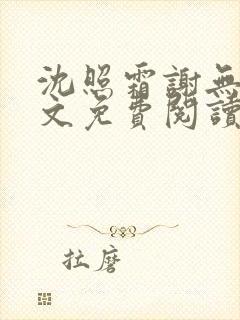 沈照霜謝無
文免費閱讀
拉磨